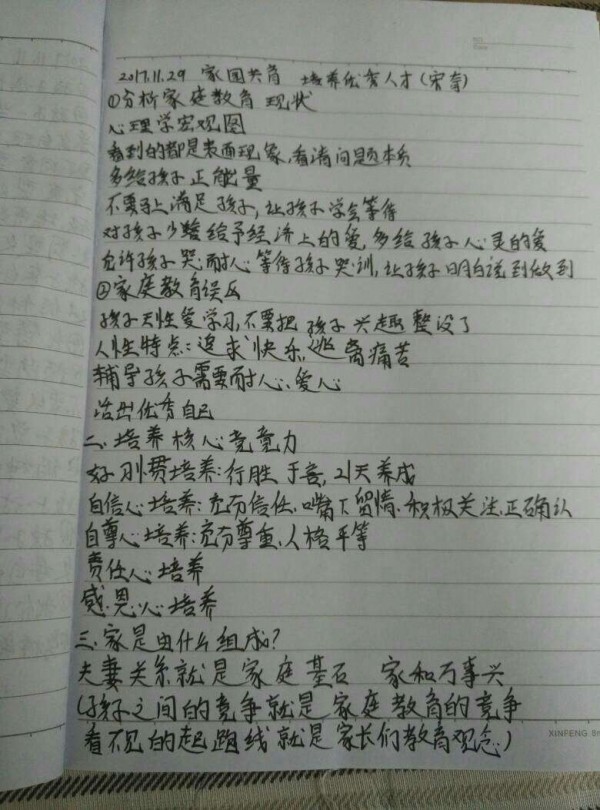 2017.11.29 家园共育 培养优秀人才(宋奇)
①分析家庭教育现状
心理学宏观图
看到的都是表面现象,看清问题本质
多给孩子正能量
不要马上满足孩子,让孩子学会等待
对孩子少给予经济上的爱,多给孩子心灵的爱
允许孩子哭,耐心等待孩子哭训,让孩子明白说到做到
②家庭教育误区
孩子天性爱学习,不要把孩子兴趣整没了
人性特点:追求快乐,逃离痛苦
辅导孩子需要耐心、爱心
活出优秀自己
二、培养核心竞争力
好习惯培养:行胜于言,21天养成
自信心培养:充分信任、嘴下留情、积极关注、正确认
自尊心培养:充分尊重、人格平等
责任心培养
感恩心培养
三、家是由什么组成?
夫妻关系就是家庭基石 家和万事兴
(孩子之间的竞争就是家庭教育的竞争
看不见的起跑线就是家长们教育观念)
XINFENG